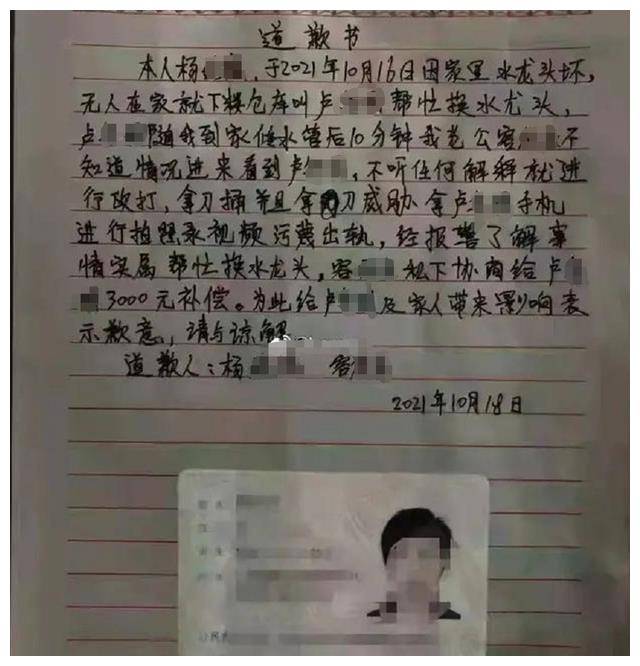 道歉书
本人杨，于2021年10月16日因家里水龙头坏，
无人在家就下楼仓库叫卢帮忙换水龙头，
卢随我到家修水管后10分钟我老公容不
知道情况进来看到卢，不听任何解释就进
行攻打，拿刀捅并且拿刀威胁拿卢手机
进行拍照录视频污蔑出轨，经报警了解事
情实属帮忙换水龙头，容私下协商给卢
3000元补偿。为此给卢及家人带来影响表
示歉意，请与谅解
道歉人：杨 容
2021年10月18日